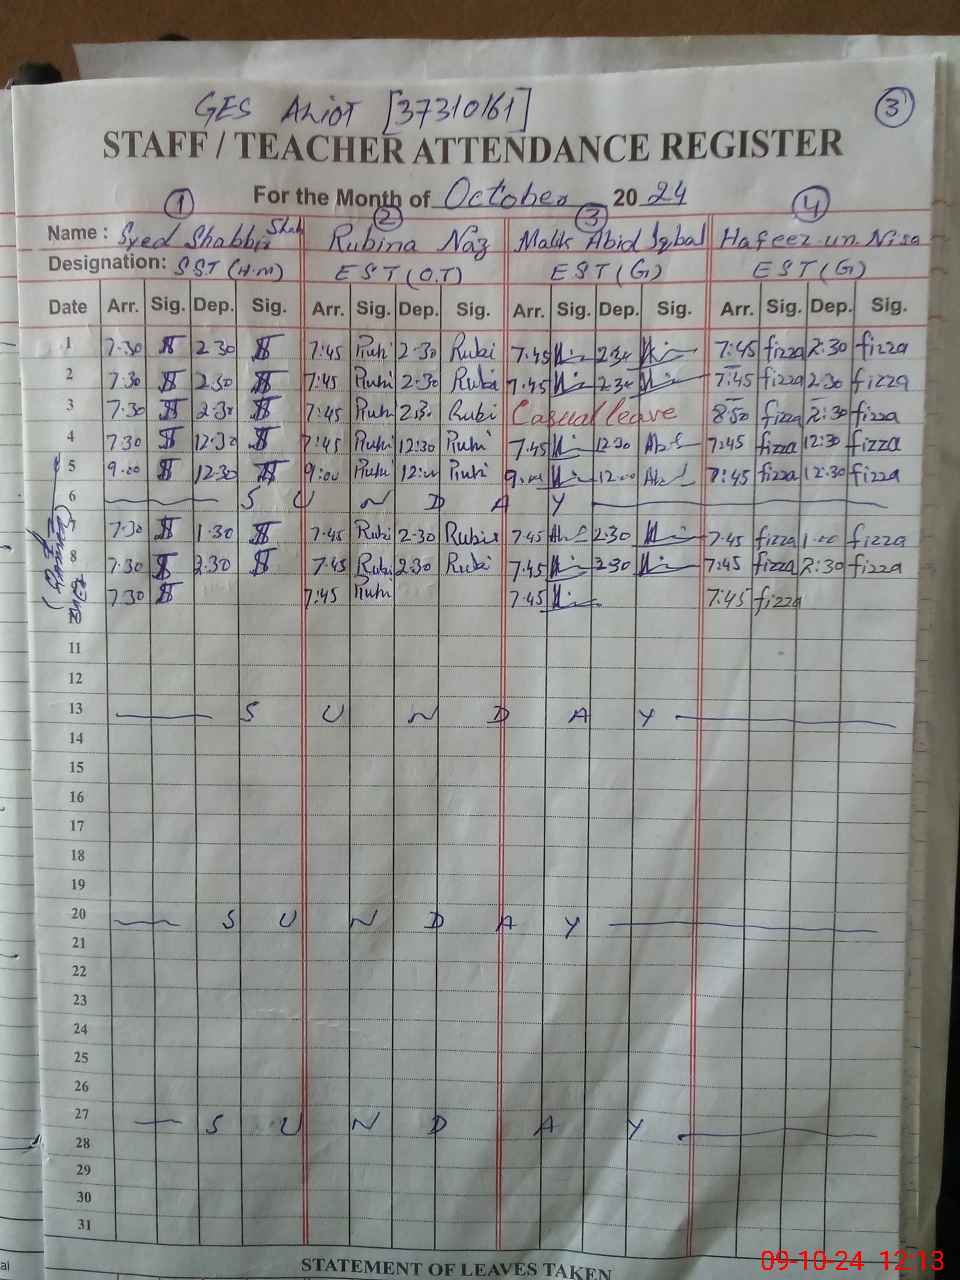 GES ALIOT [37310161]
3
STAFF / TEACHER ATTENDANCE REGISTER
For the Month of October 20 24
1 2 3 4
Name : Syed Shabbir Shah Rubina Naz Malik Abid Iqbal Hafeez un Nisa
Designation: SST (H.M) EST (O.T) EST (G) EST (G)
Date Arr. Sig. Dep. Sig. Arr. Sig. Dep. Sig. Arr. Sig. Dep. Sig. Arr. Sig. Dep. Sig.
1 7.30 2.30 7:45 Rubi 2-30 Rubi 7.45 2.30 7:45 fizza 2:30 fizza
2 7.30 2.30 7:45 Rubi 2-30 Rubi 7.45 2.30 7:45 fizza 2.30 fizza
3 7.30 2.30 7:45 Rubi 2.30 Rubi Casual leave 8:50 fizza 2:30 fizza
4 7.30 12.30 7:45 Rubi 12:30 Rubi 7.45 12.30 7:45 fizza 12:30 fizza
5 9.00 12.30 9:00 Rubi 12:00 Rubi 9.00 12.00 7:45 fizza 12:30 fizza
6 S U N D A Y
7.30 1.30 7.45 Rubi 2-30 Rubi 7.45 2.30 7.45 fizza 1.00 fizza
8 7.30 2.30 7.45 Rubi 2.30 Rubi 7.45 2.30 7:45 fizza 2:30 fizza
7.30 7:45 Rubi 7.45 7:45 fizza
11
12
13 S U N D A Y
14
15
16
17
18
19
20 S U N D A Y
21
22
23
24
25
26
27 S U N D A Y
28
29
30
31
STATEMENT OF LEAVES TAKEN
09-10-24 12:13